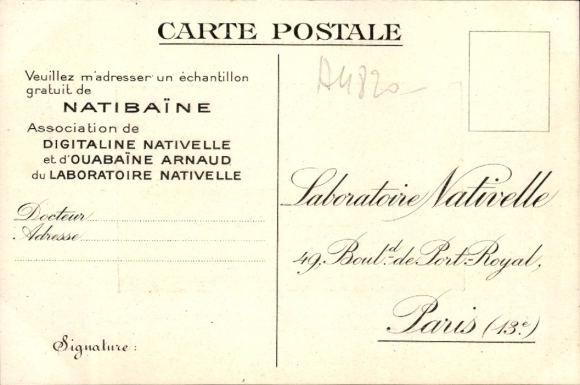 CARTE POSTALE
Veuillez m'adresser un échantillon
gratuit de
NATIBAÏNE
Association de
DIGITALINE NATIVELLE
et d'OUABAÏNE ARNAUD
du LABORATOIRE NATIVELLE
Docteur
Adresse
Signature :
Laboratoire Nativelle
49, Boul.d de Port-Royal,
Paris (13e)